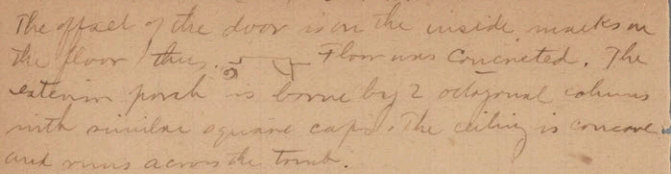 The offset of the door is on the inside marks on
the floor thus. Floor was Concreted. The
exterior porch is borne by 2 octagonal columns
with similar square caps. The ceiling is concave
and runs across the tomb.